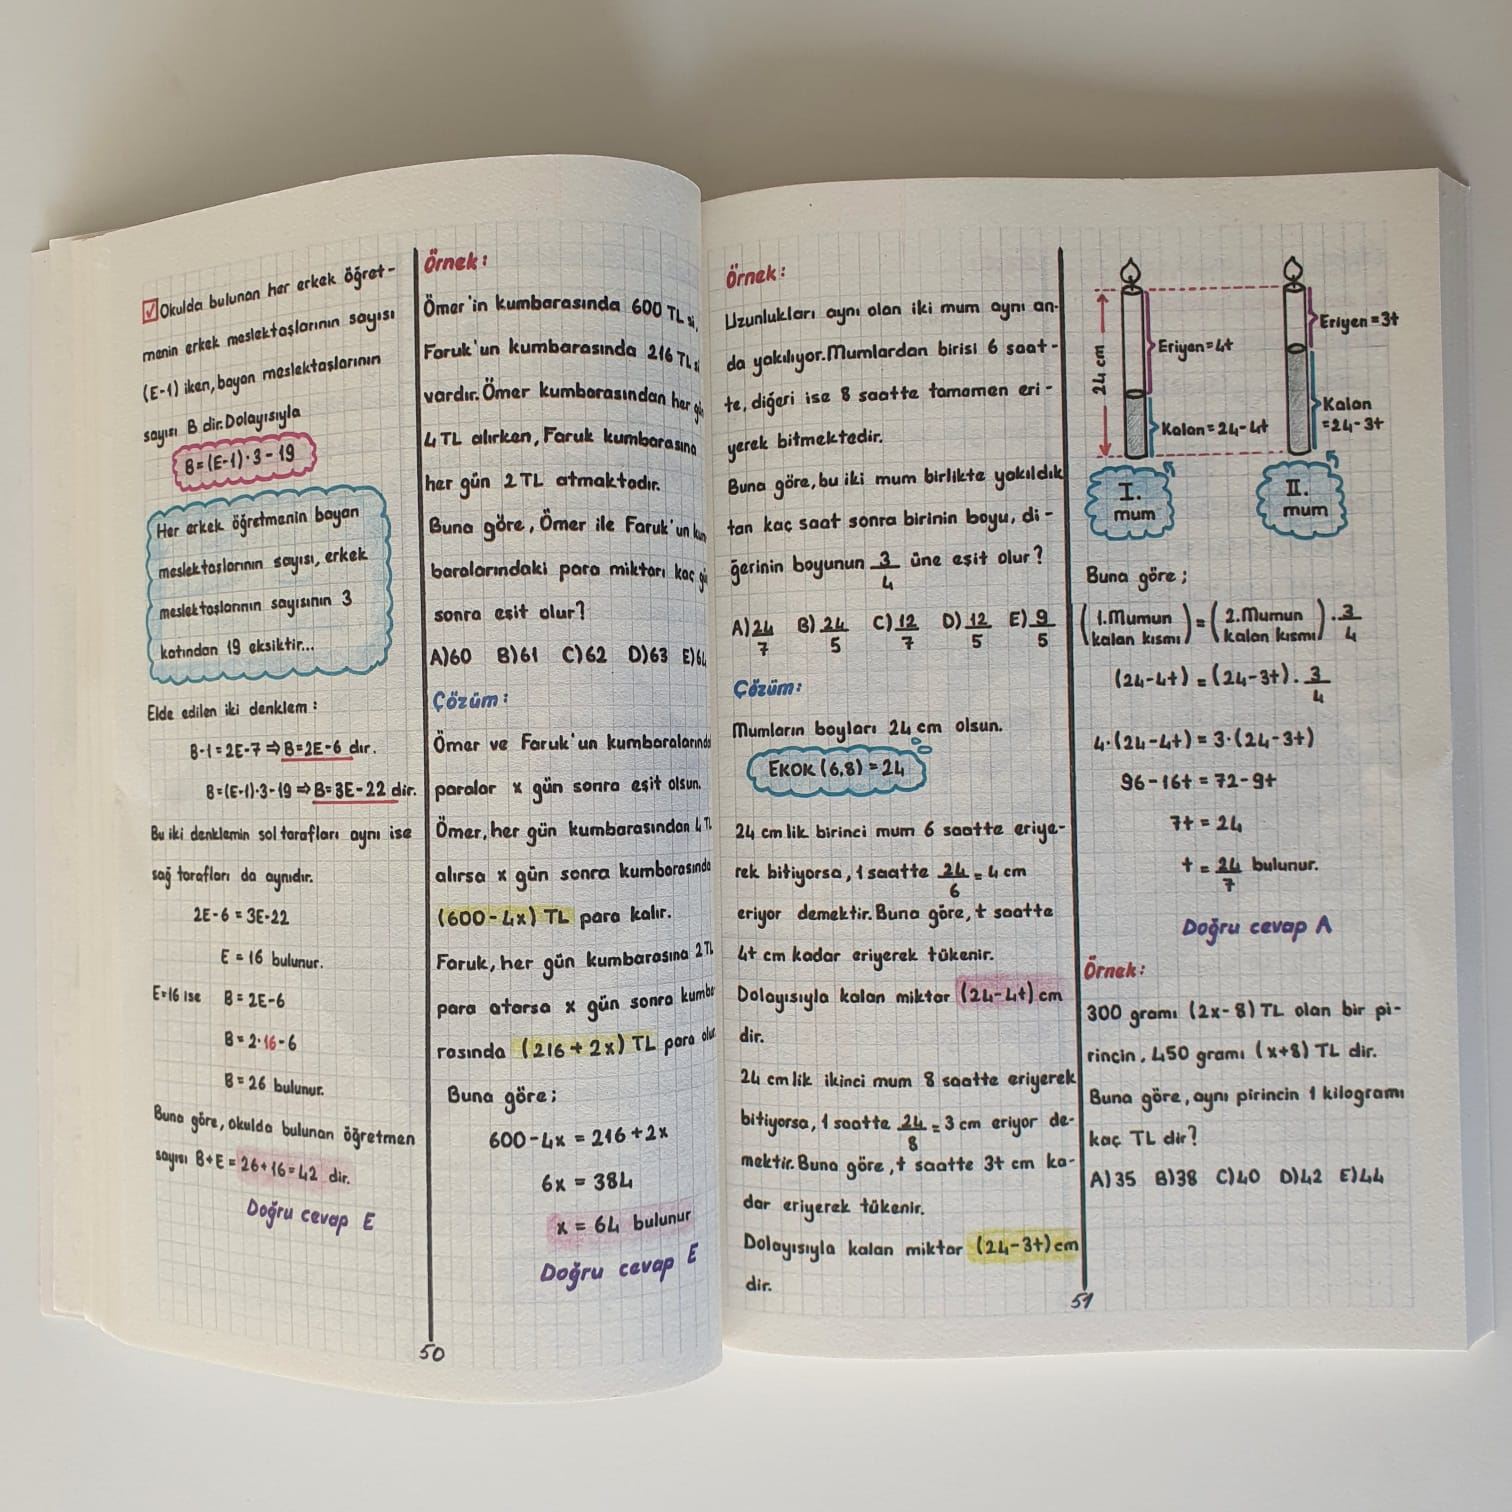 Okulda bulunan her erkek öğret-
menin erkek meslektaşlarının sayısı
(E-1) iken, bayan meslektaşlarının
sayısı B dir. Dolayısıyla
B=(E-1)·3-19
Her erkek öğretmenin bayan
meslektaşlarının sayısı, erkek
meslektaşlarının sayısının 3
katından 19 eksiktir...
Elde edilen iki denklem:
B-1=2E-7⇒B=2E-6 dır.
B=(E-1)·3-19⇒B=3E-22 dir.
Bu iki denklemin sol tarafları aynı ise
sağ tarafları da aynıdır.
2E-6=3E-22
E=16 bulunur.
E=16 ise B=2E-6
B=2·16-6
B=26 bulunur.
Buna göre, okulda bulunan öğretmen
sayısı B+E=26+16=42 dir.
Doğru cevap E
Örnek:
Ömer'in kumbarasında 600 TL si,
Faruk'un kumbarasında 216 TL
vardır. Ömer kumbarasından her
4 TL alırken, Faruk kumbarasına
her gün 2 TL atmaktadır.
Buna göre, Ömer ile Faruk'un
baralarındaki para miktarı kaç
sonra eşit olur?
A)60 B)61 C)62 D)63 E)64
Çözüm:
Ömer ve Faruk'un kumbaralarında
paralar x gün sonra eşit olsun.
Ömer, her gün kumbarasından 4 TL
alırsa x gün sonra kumbarasında
(600-4x) TL para kalır.
Faruk, her gün kumbarasına 2 TL
para atarsa x gün sonra kumba
rasında (216+2x) TL para olur
Buna göre;
600-4x=216+2x
6x=384
x=64 bulunur
Doğru cevap E
50
Örnek:
Uzunlukları aynı olan iki mum aynı an-
da yakılıyor. Mumlardan birisi 6 saat-
te, diğeri ise 8 saatte tamamen eri-
yerek bitmektedir.
Buna göre, bu iki mum birlikte yakıldık
tan kaç saat sonra birinin boyu, di-
ğerinin boyunun 3/4 üne eşit olur?
A)24/7 B)24/5 C)12/7 D)12/5 E)9/5
Çözüm:
Mumların boyları 24 cm olsun.
EKOK (6,8)=24
24 cm lik birinci mum 6 saatte eriye-
rek bitiyorsa, 1 saatte 24/6=4 cm
eriyor demektir. Buna göre, t saatte
4t cm kadar eriyerek tükenir.
Dolayısıyla kalan miktar (24-4t) cm
dir.
24 cm lik ikinci mum 8 saatte eriyerek
bitiyorsa, 1 saatte 24/8=3 cm eriyor de-
mektir. Buna göre, t saatte 3t cm ka-
dar eriyerek tükenir.
Dolayısıyla kalan miktar (24-3t) cm
dir.
24 cm
Eriyen=4t
Kalan=24-4t
I.
mum
Eriyen=3t
Kalan
=24-3t
II.
mum
Buna göre;
(1.Mumun kalan kısmı)=(2.Mumun kalan kısmı)·3/4
(24-4t)=(24-3t)·3/4
4·(24-4t)=3·(24-3t)
96-16t=72-9t
7t=24
t=24/7 bulunur.
Doğru cevap A
Örnek:
300 gramı (2x-8) TL olan bir pi-
rincin, 450 gramı (x+8) TL dir.
Buna göre, aynı pirincin 1 kilogramı
kaç TL dir?
A)35 B)38 C)40 D)42 E)44
51